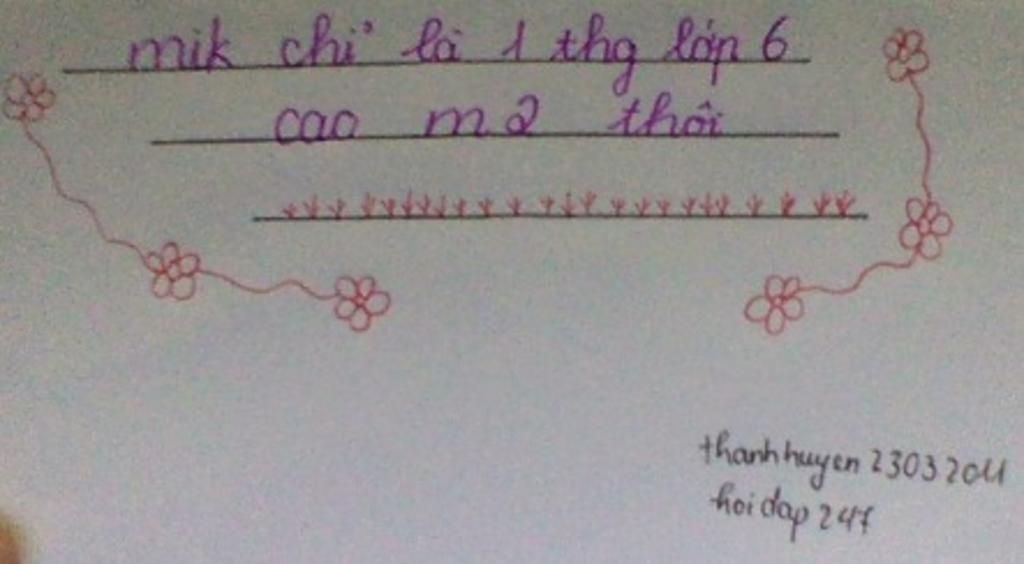 mik chỉ là 1 thg lớp 6
cao m2 thôi
thanhhuyen23032011
hoidap247